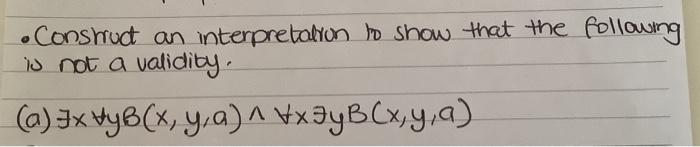 • Construct an interpretation to show that the following
is not a validity.
(a) ∃x∀yB(x, y, a) ∧ ∀x∃yB(x, y, a)